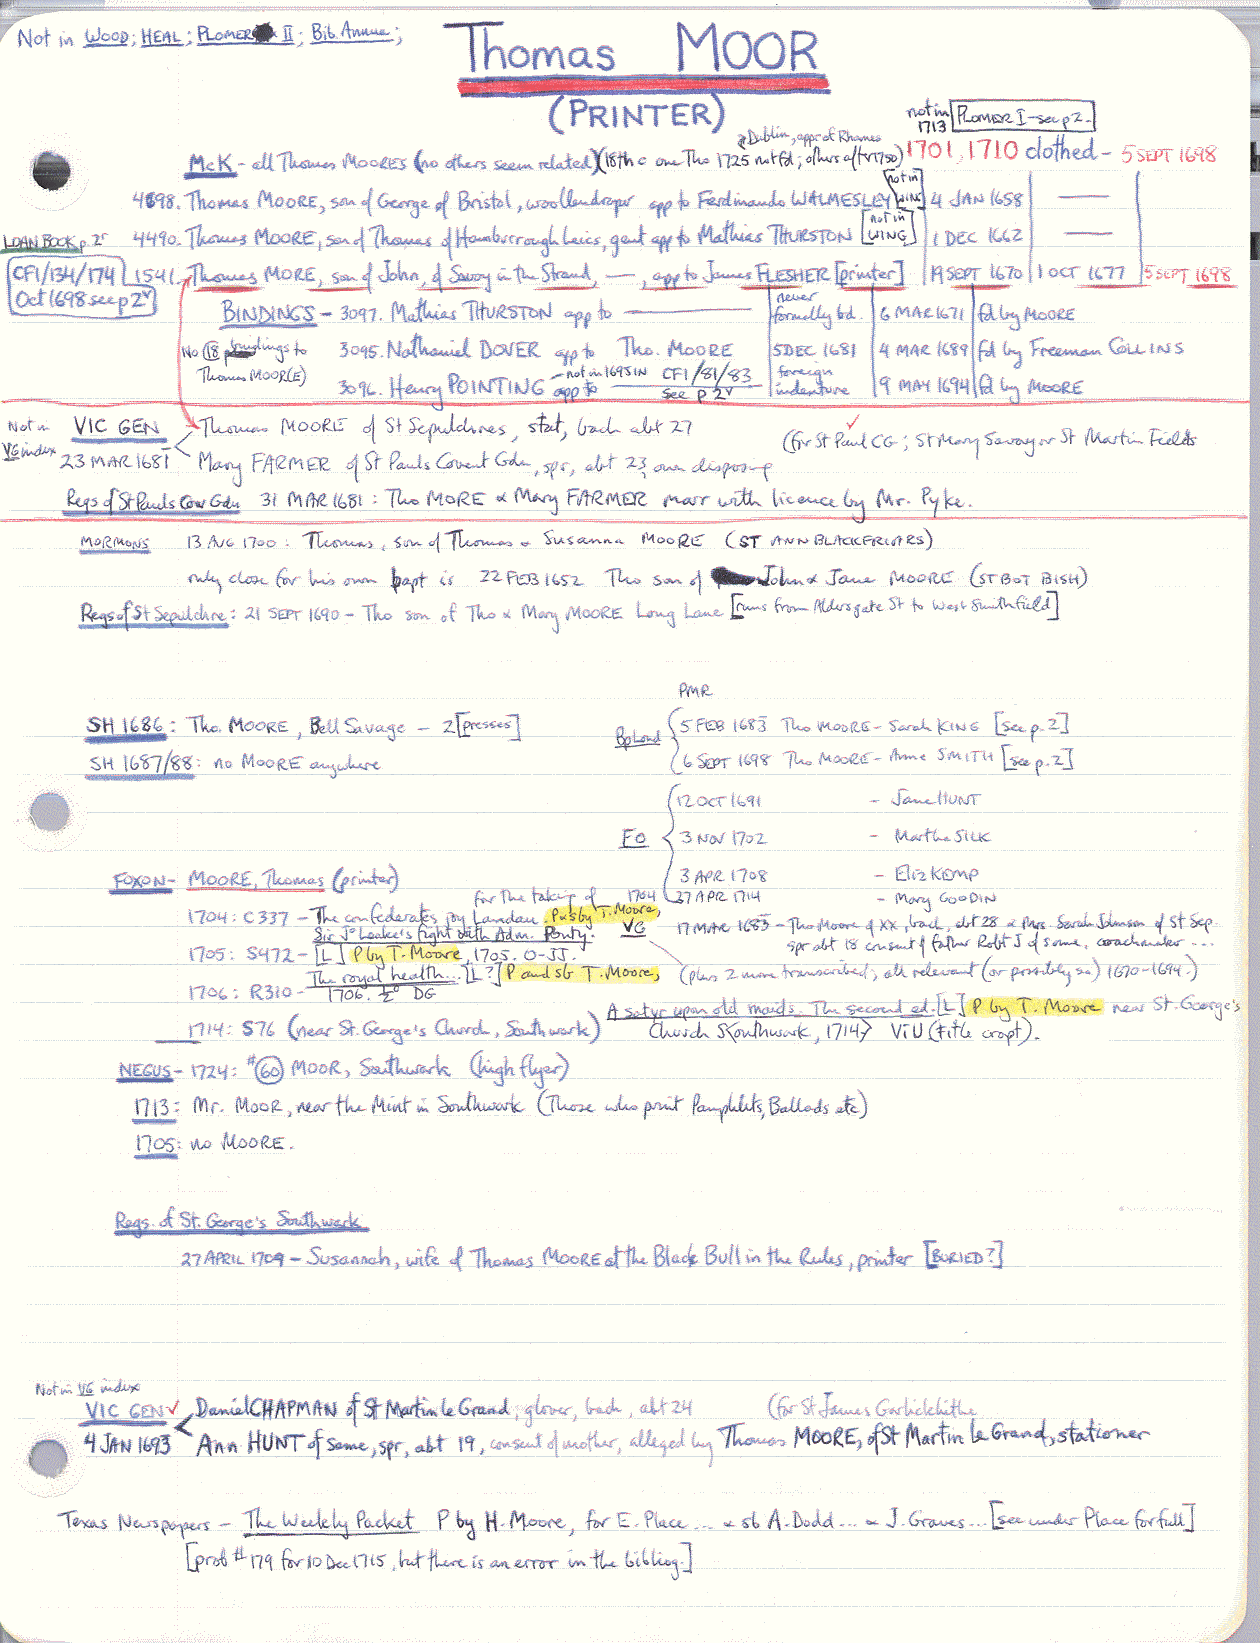 Not in WOOD; HEAL; PLOMER II; Bib. Annua;
Thomas MOOR
(PRINTER)
not in 1713
PLOMER I - see p2.
Dublin, appr of Rhames
McK - all Thomas MOORES (no others seem related) (18th c one Tho 1725 not fd; others after 1750) 1701, 1710 clothed - 5 SEPT 1698
4898. Thomas MOORE, son of George of Bristol, woollendraper app to Ferdinando WALMESLEY [not in WING] 4 JAN 1658 —
LOAN BOOK p. 2r 4490. Thomas MOORE, son of Thomas of Leics, gent app to Mathias THURSTON [not in WING] 1 DEC 1662 —
CF1/134/174 1541. Thomas MORE, son of John, of Savoy in the Strand, —, app to James FLESHER [printer] 19 SEPT 1670 1 OCT 1677 5 SEPT 1698
Oct 1698 see p 2v
BINDINGS - 3097. Mathias THURSTON app to — never formally bd. 6 MAR 1671 fd by MOORE
No 18 bindings to Thomas MOOR(E)
3095. Nathaniel DOVER app to Tho. MOORE 5 DEC 1681 4 MAR 1689 fd by Freeman COLLINS
3096. Henry POINTING - not in 1695 IN app to CF1/81/83 see p 2v foreign indenture 9 MAY 1694 fd by MOORE
Not in VG index
VIC GEN Thomas MOORE of St Sepulchres, stat, bach abt 27
23 MAR 1681 Mary FARMER of St Pauls Covent Gdn, spr, abt 23, own disposing
(for St Paul CG; St Mary Savoy or St Martin Fields
Regs of St Pauls Cov Gdn 31 MAR 1681: Tho MORE & Mary FARMER marr with licence by Mr. Pyke.
MORMONS 13 AUG 1700: Thomas, son of Thomas & Susanna MOORE (ST ANN BLACKFRIARS)
only close for his own bapt is 22 FEB 1652 Tho son of John & Jane MOORE (ST BOT BISH)
Regs of St Sepulchre: 21 SEPT 1690 - Tho son of Tho & Mary MOORE Long Lane [runs from Aldersgate St to West Smithfield]
PMR
SH 1686: Tho. MOORE, Bell Savage - 2 [presses]
Bp Lond 5 FEB 1683 Tho MOORE - Sarah KING [see p. 2]
SH 1687/88: no MOORE anywhere
6 SEPT 1698 Tho MOORE - Anne SMITH [see p. 2]
FO 12 OCT 1691 - Jane HUNT
3 NOV 1702 - Martha SILK
3 APR 1708 - Eliz KEMP
27 APR 1714 - Mary GOODIN
FOXON - MOORE, Thomas (printer)
for the taking of 1704
1704: C337 - The confederates joy Landau. P & s by T. Moore,
VG 17 MAR 1683 - Tho Moore of XX, bach, abt 28 & Mrs. Sarah Johnson of St Sep. spr abt 18 consent of father Robt J of same, coachmaker ...
(plus 2 more transcribed; all relevant (or possibly so) 1670-1694.)
Sir Jo Leake's fight with Adm. Ponty.
1705: S472 - [L] P by T. Moore, 1705. O-JJ.
The royal health... [L?] P and sb T. Moore,
1706: R310 - 1706. ½° DG
1714: S76 (near St. George's Church, Southwark)
A satyr upon old maids. The second ed. [L] P by T. Moore near St. George's Church S<outhwark, 1714> ViU (title cropt).
NEGUS - 1724: #60 MOOR, Southwark (high flyer)
1713: Mr. MOOR, near the Mint in Southwark (Those who print Pamphlets, Ballads etc)
1705: no MOORE.
Regs. of St. George's Southwark
27 APRIL 1709 - Susannah, wife of Thomas MOORE at the Black Bull in the Rules, printer [BURIED?]
Not in VG index
VIC GEN Daniel CHAPMAN of St Martin le Grand, glover, bach, abt 24 (for St James Garlickhithe
4 JAN 1693 Ann HUNT of same, spr, abt 19, consent of mother, alleged by Thomas MOORE, of St Martin le Grand, stationer
Texas Newspapers - The Weekly Packet P by H. Moore, for E. Place ... & sb A. Dodd ... & J. Graves ... [see under Place for full]
[prob # 179 for 10 Dec 1715, but there is an error in the bibliog.]